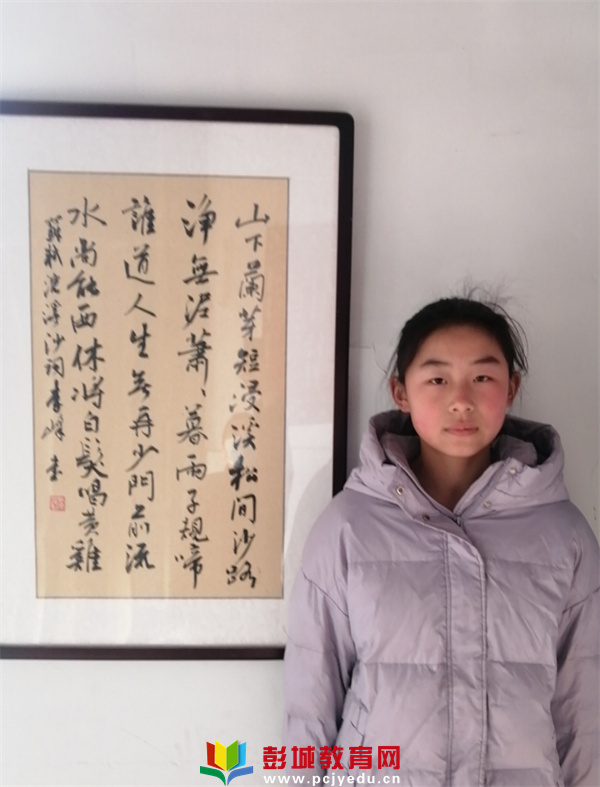 山下蘭芽短浸溪松間沙路
淨無泥蕭、暮雨子規啼
誰道人生無再少門前流
水尚能西休將白髮唱黃雞
蘇軾浣溪沙詞李峰書
彭城教育网
www.pcjyedu.cn